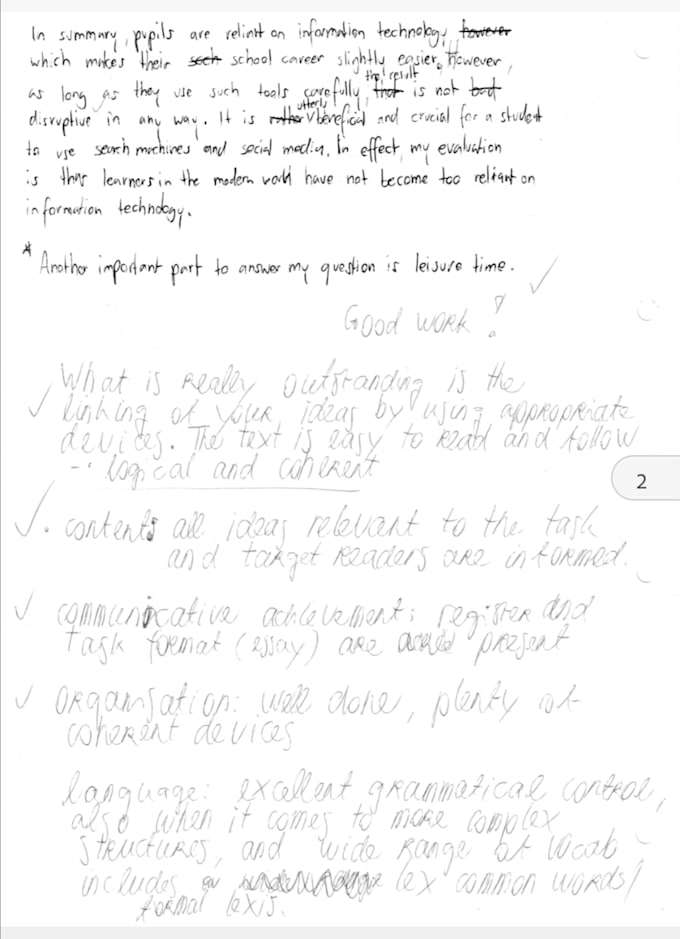 In summary, pupils are reliant on information technology, however
which makes their such school career slightly easier. However,
as long as they use such tools carefully, the result that is not bad
disruptive in any way. It is rather utterly beneficial and crucial for a student
to use search machines and social media. In effect, my evaluation
is that learners in the modern world have not become too reliant on
information technology.
* Another important part to answer my question is leisure time. ✓
Good work!
What is really outstanding is the
✓ linking of your ideas by using appropriate
devices. The text is easy to read and follow
logical and coherent
2
✓ • contents all ideas relevant to the task
and target readers are informed.
✓ communicative achievement: register and
task format (essay) are present
✓ organisation: well done, plenty of
coherent devices
language: excellent grammatical control,
also when it comes to more complex
structures, and wide range of vocab –
includes lex common words/
formal lexis.